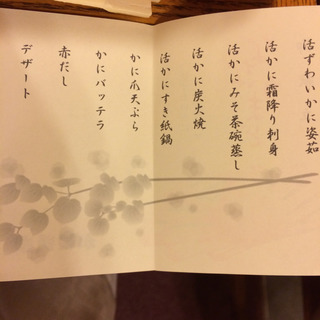 活ずわいかに姿茹
活かに霜降り刺身
活かにみそ茶碗蒸し
活かに炭火焼
活かにすき紙鍋
かに爪天ぷら
かにバッテラ
赤だし
デザート